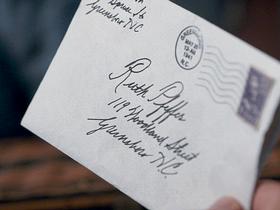 Spruce St.
Greensboro N.C.
GREENSBORO
MAY 20
1941
N.C.
Ruth Pfeffer
119 Woodland Street
Greensboro N.C.